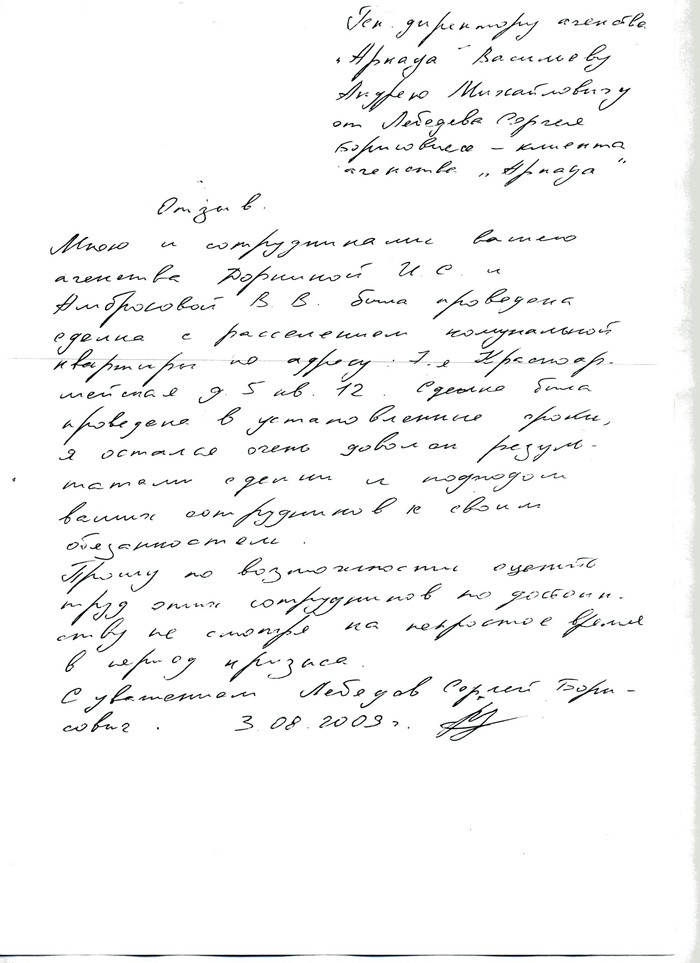 Ген. директору агенства
„Аркада" Васильеву
Андрею Михайловичу
от Лебедева Сергея
Борисовича – клиента
агенства „Аркада"
Отзыв.
Мною и сотрудниками вашего
агенства Доркиной И. С. и
Амбросовой В. В. была проведена
сделка с расселением комунальной
квартиры по адресу: 7-я Красноар-
мейская д. 5 кв. 12. Сделка была
проведена в установленные сроки,
я остался очень доволен резуль-
татами сделки и подходом
ваших сотрудников к своим
обязанностям.
Прошу по возможности оценить
труд этих сотрудников по достоин-
ству не смотря на непростое время
в период кризиса.
С уважением Лебедев Сергей Бори-
сович. 3.08.2009 г.